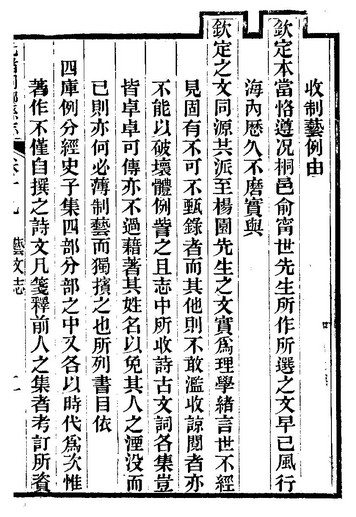 收制藝例由
欽定本當恪遵況桐邑俞甯世先生所作所選之文早已風行
海內歷久不磨實與
欽定之文同源其派至楊園先生之文實爲理學緒言世不經
見固有不可不甄錄者而其他則不敢濫收諒閱者亦
不能以破壞體例訾之且志中所收詩古文詞各集豈
皆卓卓可傳亦不過藉著其姓名以免其人之湮没而
已則亦何必薄制藝而獨擯之也所列書目依
四庫例分經史子集四部分部之中又各以時代爲次惟
著作不僅自撰之詩文凡箋釋前人之集者考訂所資
藝文志